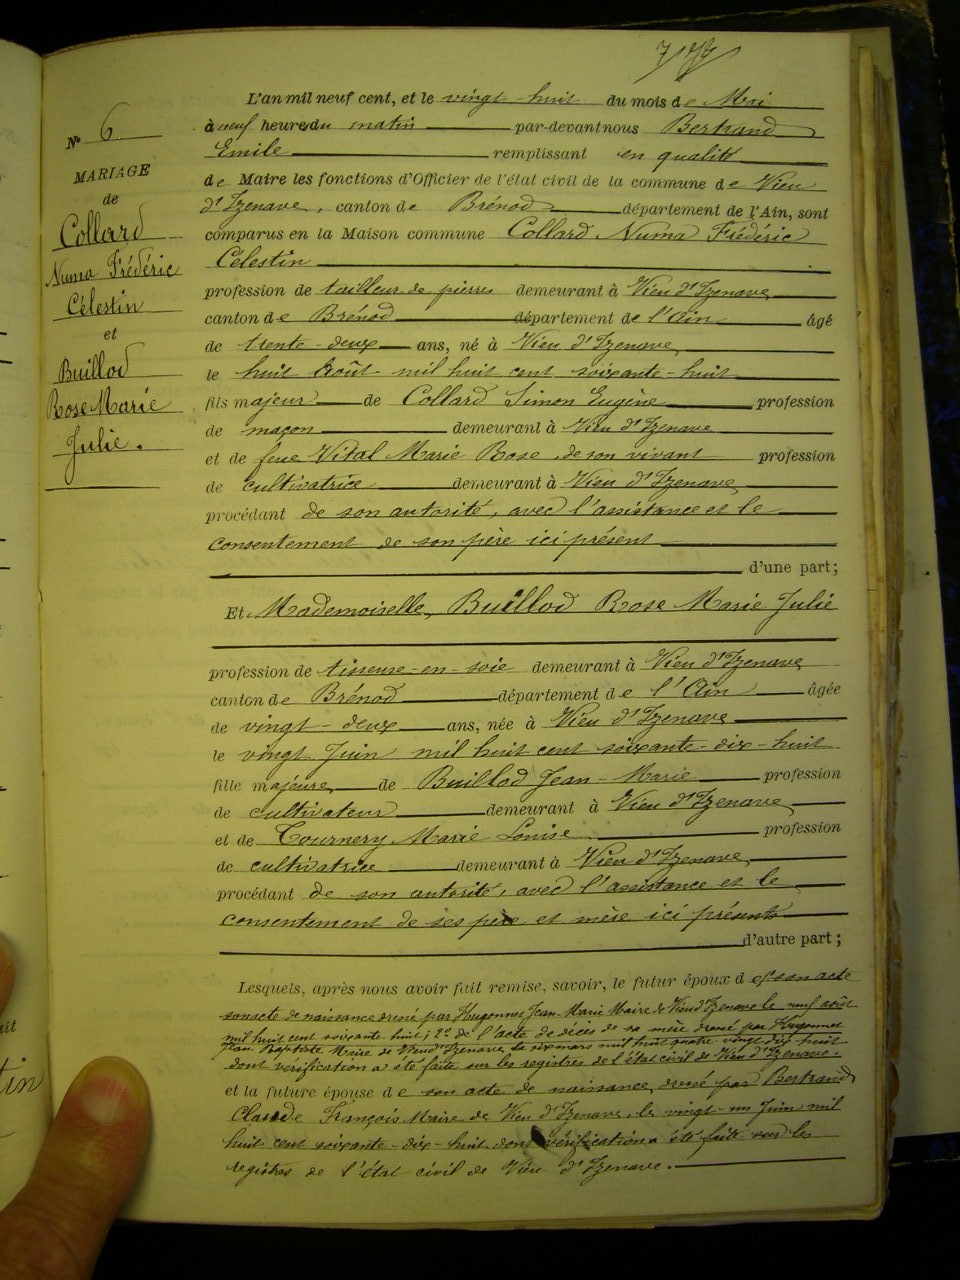 L'an mil neuf cent, et le vingt huit du mois de Mai
à neuf heures du matin par-devant nous Bertrand
Emile remplissant en qualité
de Maire les fonctions d'Officier de l'état civil de la commune de Vieu
d'Izenave, canton de Brénod département de l'Ain, sont
comparus en la Maison commune Collard Numa Frédéric
Célestin
profession de tailleur de pierres demeurant à Vieu d'Izenave
canton de Brénod département de l'Ain âgé
de trente-deux ans, né à Vieu d'Izenave
le huit Août mil huit cent soixante-huit
fils majeur de Collard Simon Eugène profession
de maçon demeurant à Vieu d'Izenave
et de feue Vital Marie Rose, de son vivant profession
de cultivatrice demeurant à Vieu d'Izenave
procédant de son autorité, avec l'assistance et le
consentement de son père ici présent
d'une part;
Et Mademoiselle, Buillod Rose Marie Julie
profession de tisseuse-en-soie demeurant à Vieu d'Izenave
canton de Brénod département de l'Ain âgée
de vingt-deux ans, née à Vieu d'Izenave
le vingt Juin mil huit cent soixante-dix-huit
fille majeure de Buillod Jean-Marie profession
de cultivateur demeurant à Vieu d'Izenave
et de Tournery Marie Louise profession
de cultivatrice demeurant à Vieu d'Izenave
procédant de son autorité, avec l'assistance et le
consentement de ses père et mère ici présents
d'autre part;
Lesquels, après nous avoir fait remise, savoir, le futur époux de son acte
son acte de naissance dressé par Hugonnet Jean Marie Maire de Vieu d'Izenave le neuf août
mil huit cent soixante huit; 2º de l'acte de décès de sa mère dressé par Hugonnet
Jean Baptiste Maire de Vieu d'Izenave le six mars mil huit quatre vingt dix huit
dont vérification a été faite sur les registres de l'état civil de Vieu d'Izenave.
et la future épouse de son acte de naissance, dressé par Bertrand
Claude François Maire de Vieu d'Izenave, le vingt-un Juin mil
huit cent soixante-dix-huit dont vérification a été faite sur les
registres de l'état civil de Vieu d'Izenave.
Nº 6
MARIAGE
de
Collard
Numa Frédéric
Célestin
et
Buillod
Rose Marie
Julie.